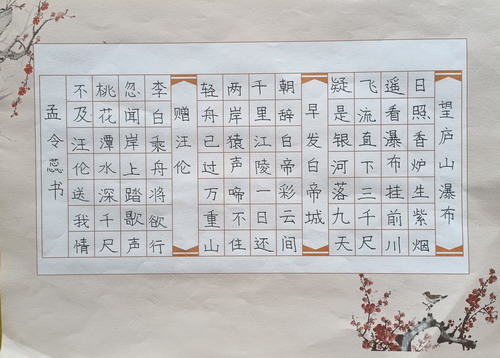 望庐山瀑布
日照香炉生紫烟
遥看瀑布挂前川
飞流直下三千尺
疑是银河落九天
早发白帝城
朝辞白帝彩云间
千里江陵一日还
两岸猿声啼不住
轻舟已过万重山
赠汪伦
李白乘舟将欲行
忽闻岸上踏歌声
桃花潭水深千尺
不及汪伦送我情
孟令蕊书